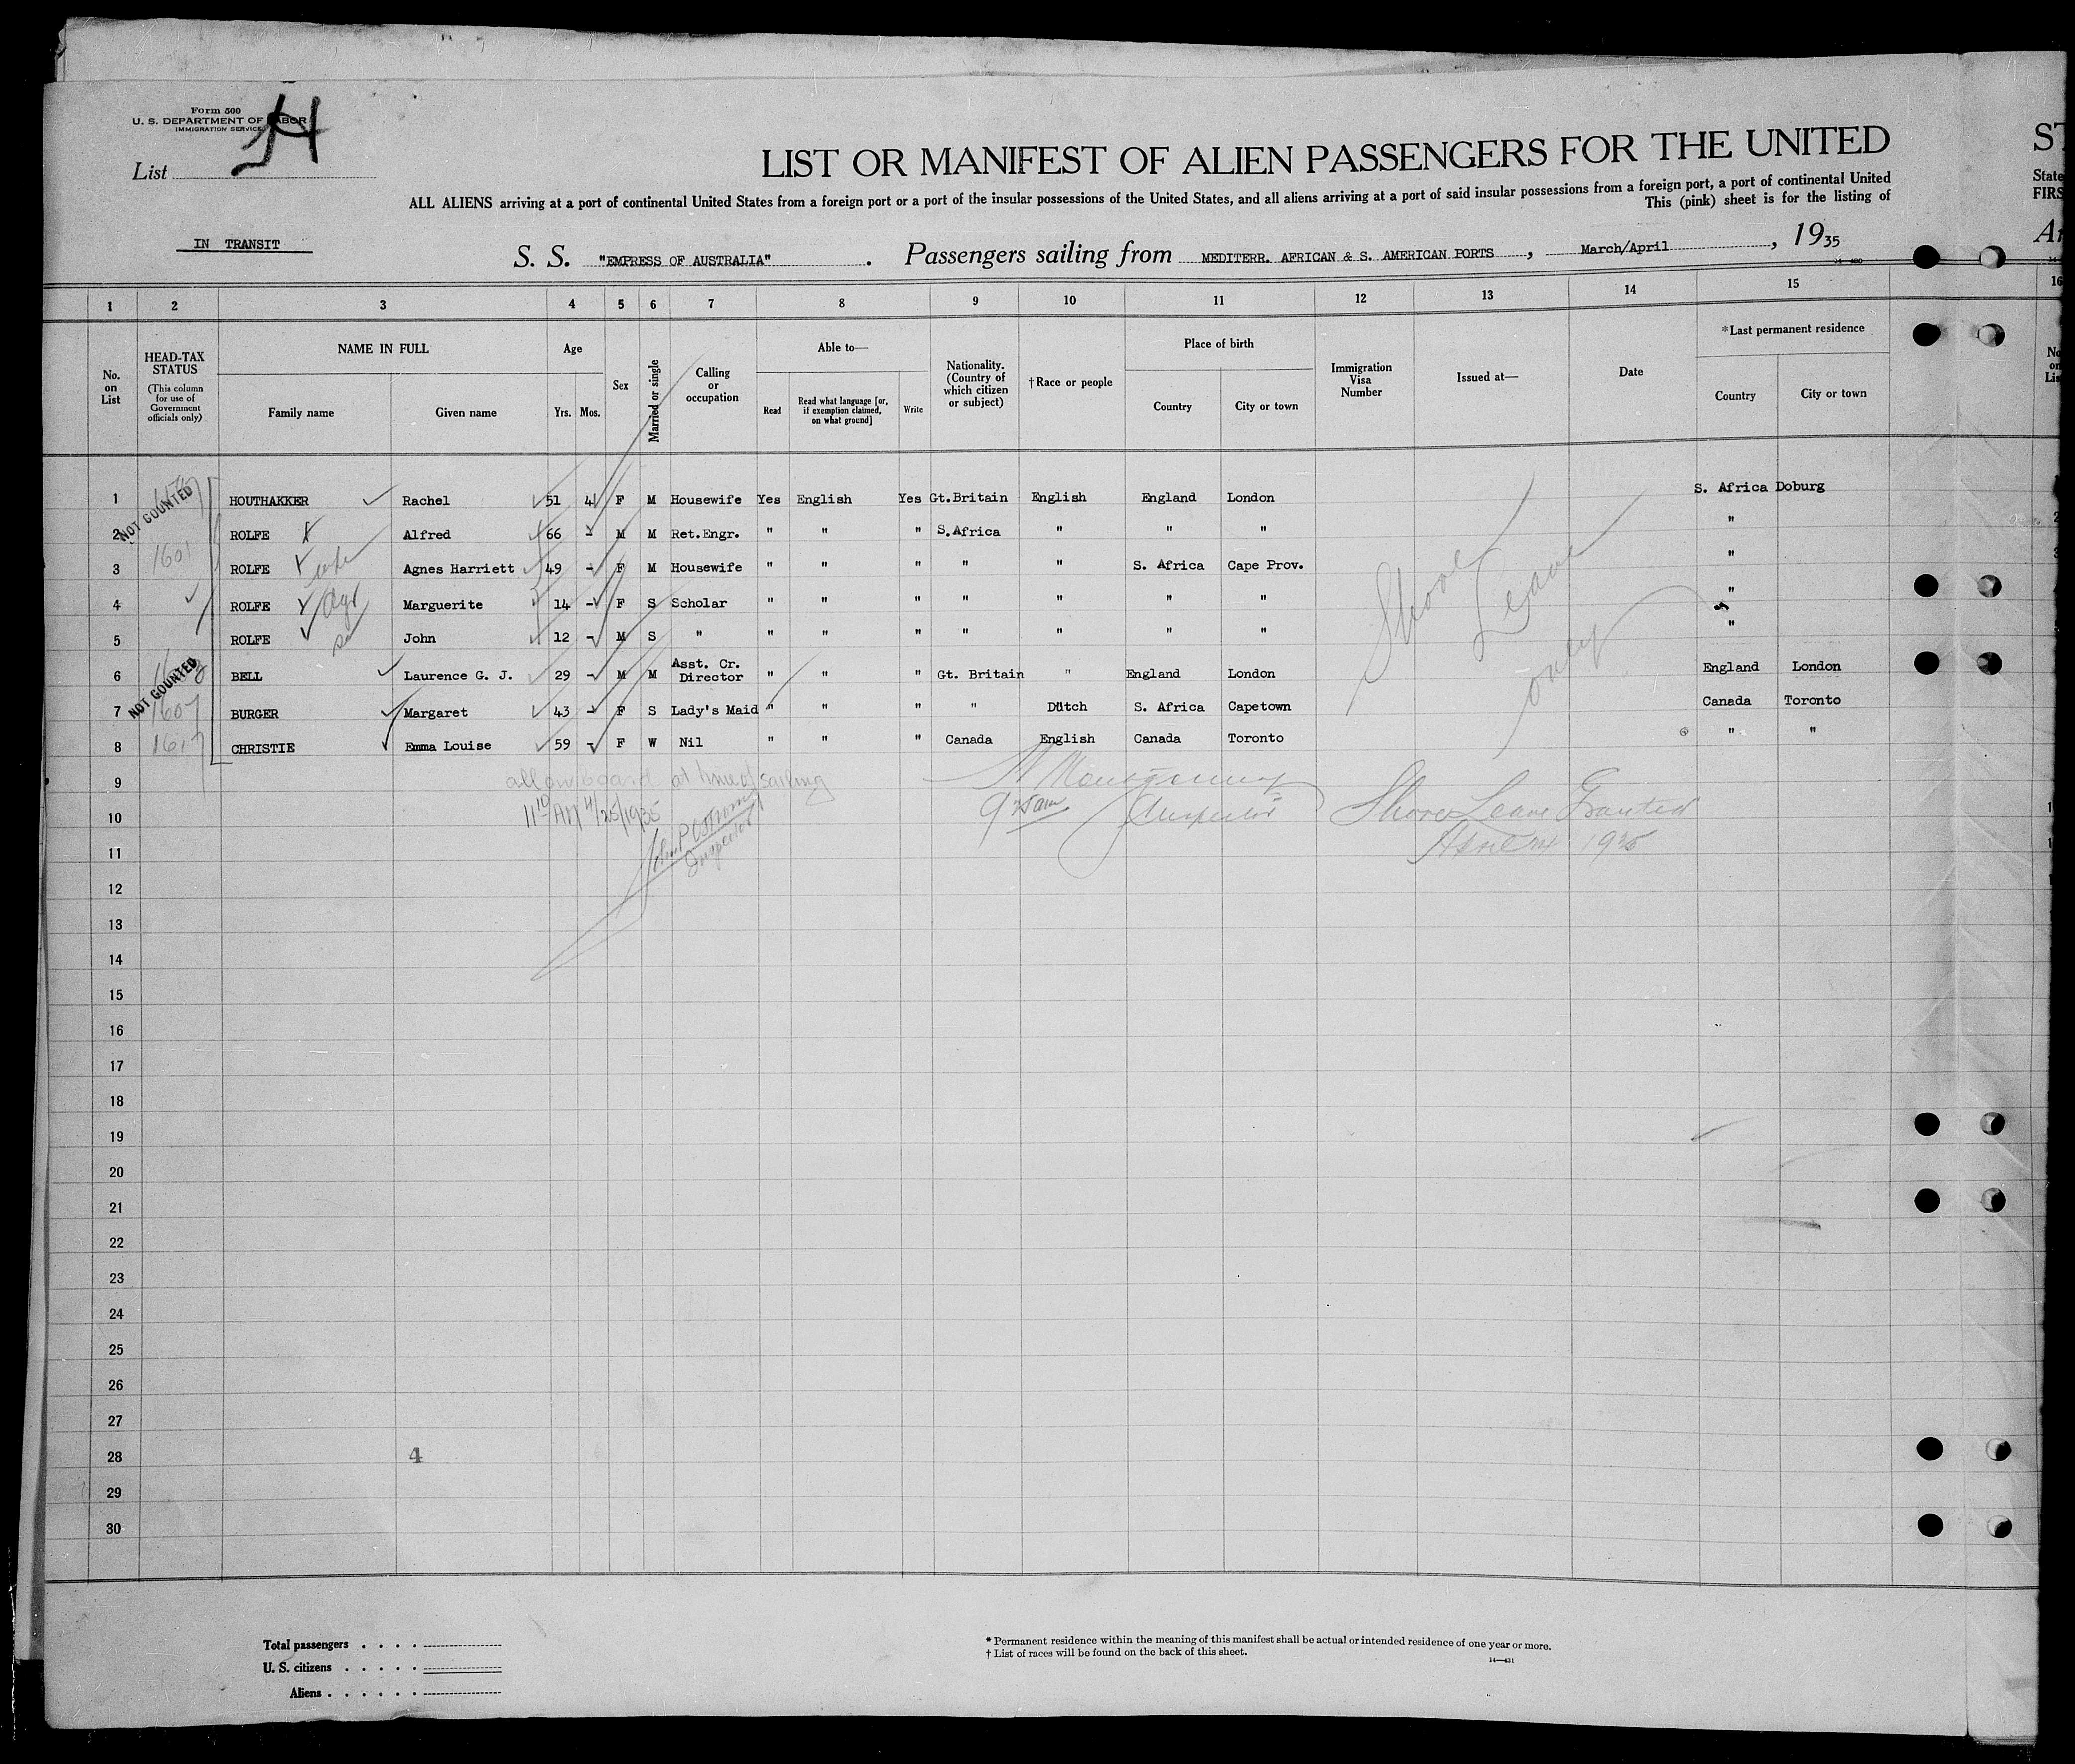 Form 500
U. S. DEPARTMENT OF LABOR
IMMIGRATION SERVICE
List
LIST OR MANIFEST OF ALIEN PASSENGERS FOR THE UNITED
ST
ALL ALIENS arriving at a port of continental United States from a foreign port or a port of the insular possessions of the United States, and all aliens arriving at a port of said insular possessions from a foreign port, a port of continental United
State
This (pink) sheet is for the listing of
FIRS
IN TRANSIT
S. S. "EMPRESS OF AUSTRALIA". Passengers sailing from MEDITERR. AFRICAN & S. AMERICAN PORTS, March/April, 1935
1 2 3 4 5 6 7 8 9 10 11 12 13 14 15 16
No. on List
HEAD-TAX STATUS
(This column for use of Government officials only)
NAME IN FULL
Family name Given name
Age
Yrs. Mos.
Sex
Married or single
Calling or occupation
Able to—
Read Read what language [or, if exemption claimed, on what ground] Write
Nationality. (Country of which citizen or subject)
†Race or people
Place of birth
Country City or town
Immigration Visa Number
Issued at—
Date
*Last permanent residence
Country City or town
1 NOT COUNTED HOUTHAKKER Rachel 51 4 F M Housewife Yes English Yes Gt.Britain English England London S. Africa Doburg
2 ROLFE Alfred 66 - M M Ret.Engr. " " " S.Africa " " " "
3 1601 ROLFE wife Agnes Harriett 49 - F M Housewife " " " " " S. Africa Cape Prov. "
4 ROLFE Marguerite 14 - F S Scholar " " " " " " " "
5 ROLFE John 12 - M S " " " " " " " " "
6 NOT COUNTED BELL Laurence G. J. 29 - M M Asst. Cr. Director " " " Gt. Britain " England London England London
7 1607 BURGER Margaret 43 - F S Lady's Maid " " " " Dutch S. Africa Capetown Canada Toronto
8 1617 CHRISTIE Emma Louise 59 - F W Nil " " " Canada English Canada Toronto " "
Shore Leave only
9 all on board at time of sailing
10 11 10 AM 4/25/1935 9 25 am Inspector Shore Leave Granted
Inspector
11 1935
12
13
14
15
16
17
18
19
20
21
22
23
24
25
26
27
28 4
29
30
Total passengers . . . .
U. S. citizens . . . . .
Aliens . . . . . .
* Permanent residence within the meaning of this manifest shall be actual or intended residence of one year or more.
† List of races will be found on the back of this sheet.
14—431